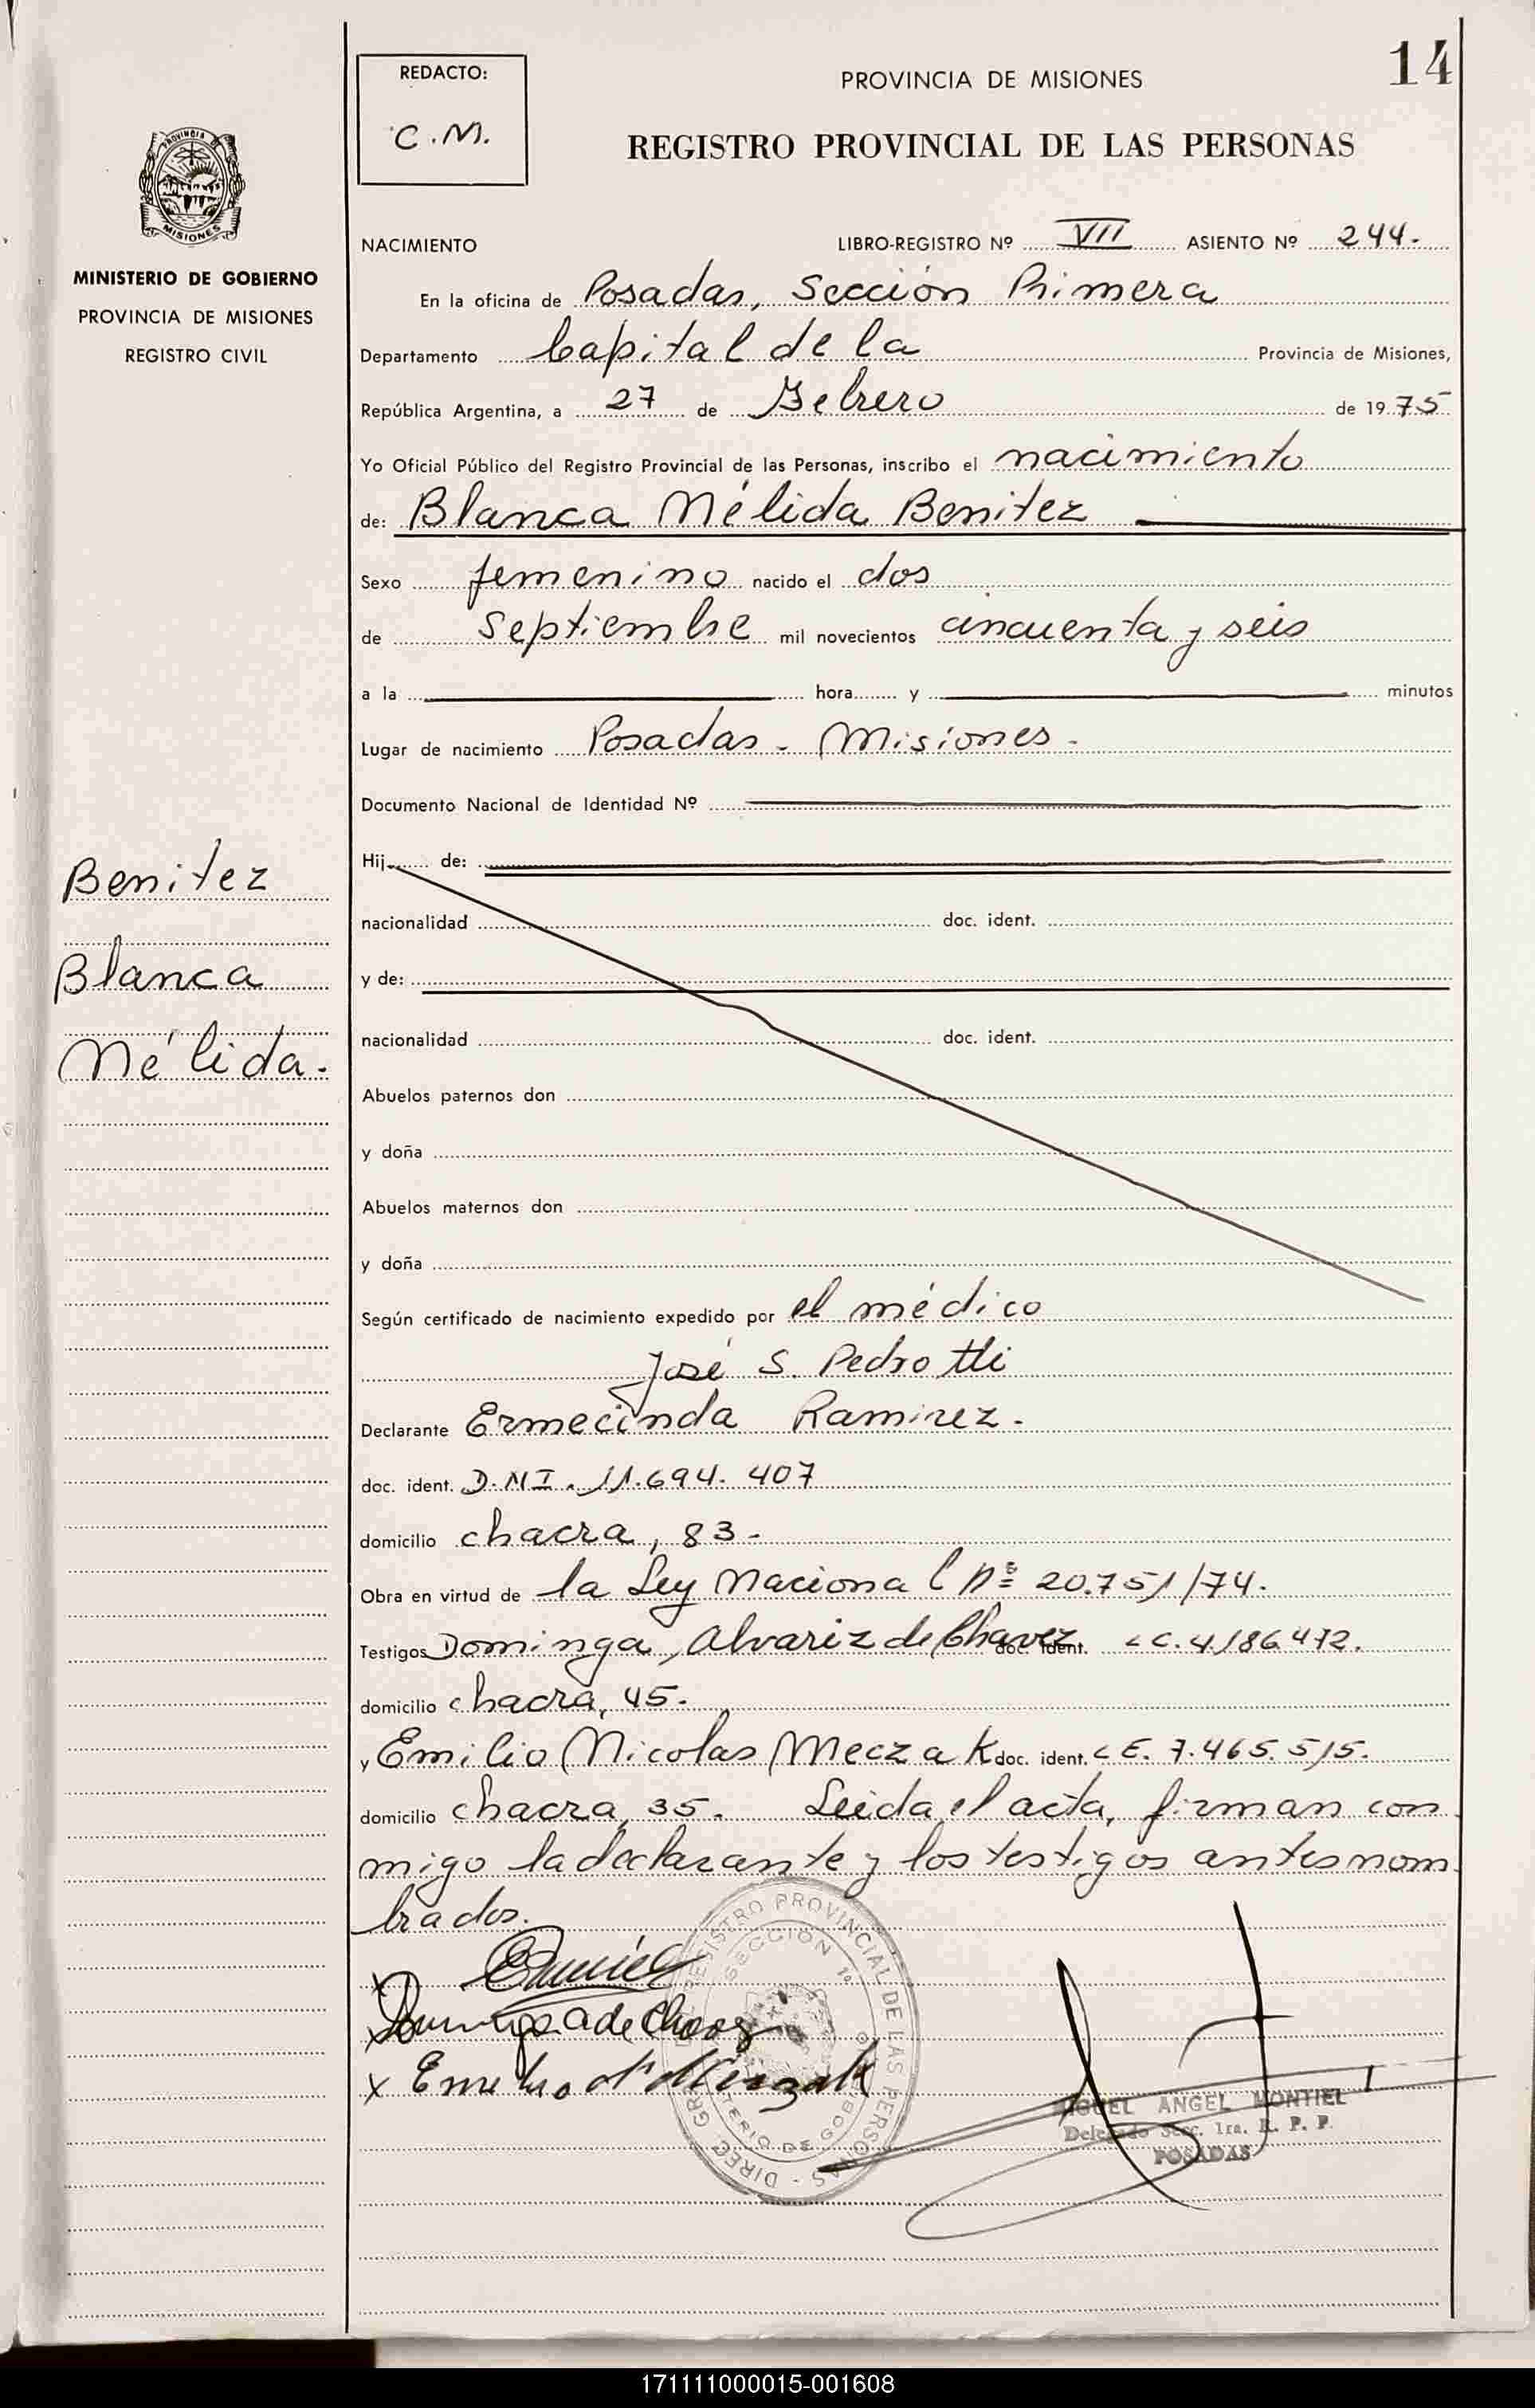 14
REDACTO:
C.M.
PROVINCIA DE MISIONES
REGISTRO PROVINCIAL DE LAS PERSONAS
PROVINCIA DE
MISIONES
MINISTERIO DE GOBIERNO
PROVINCIA DE MISIONES
REGISTRO CIVIL
NACIMIENTO LIBRO-REGISTRO Nº VII ASIENTO Nº 244.
En la oficina de Posadas, Sección Primera
Departamento Capital de la Provincia de Misiones,
República Argentina, a 27 de Febrero de 1975
Yo Oficial Público del Registro Provincial de las Personas, inscribo el nacimiento
de: Blanca Nélida Benitez
Sexo femenino nacido el dos
de Septiembre mil novecientos cincuenta y seis
a la hora y minutos
Lugar de nacimiento Posadas - Misiones -
Documento Nacional de Identidad Nº
Hij de:
nacionalidad doc. ident.
y de:
nacionalidad doc. ident.
Abuelos paternos don
y doña
Abuelos maternos don
y doña
Benitez
Blanca
Nélida.
Según certificado de nacimiento expedido por el médico
José S. Pedrotti
Declarante Ermecinda Ramirez -
doc. ident. D.N.I. 11.694.407
domicilio chacra, 83 -
Obra en virtud de la Ley Nacional Nº 20.751/74.
Testigos Dominga Alvariz de Chavez doc. ident. L C. 4.186.472.
domicilio chacra, 45.
y Emilio Nicolas Meczak doc. ident. L E. 7.465.515.
domicilio chacra, 35. Leida el acta, firman con
migo la declarante y los testigos antes nom
brados.
DIREC. GRAL. DEL REGISTRO PROVINCIAL DE LAS PERSONAS
SECCION 1a
MINISTERIO DE GOBIERNO
MIGUEL ANGEL MONTIEL
Delegado Secc. 1ra. R. P. P.
POSADAS
171111000015-001608